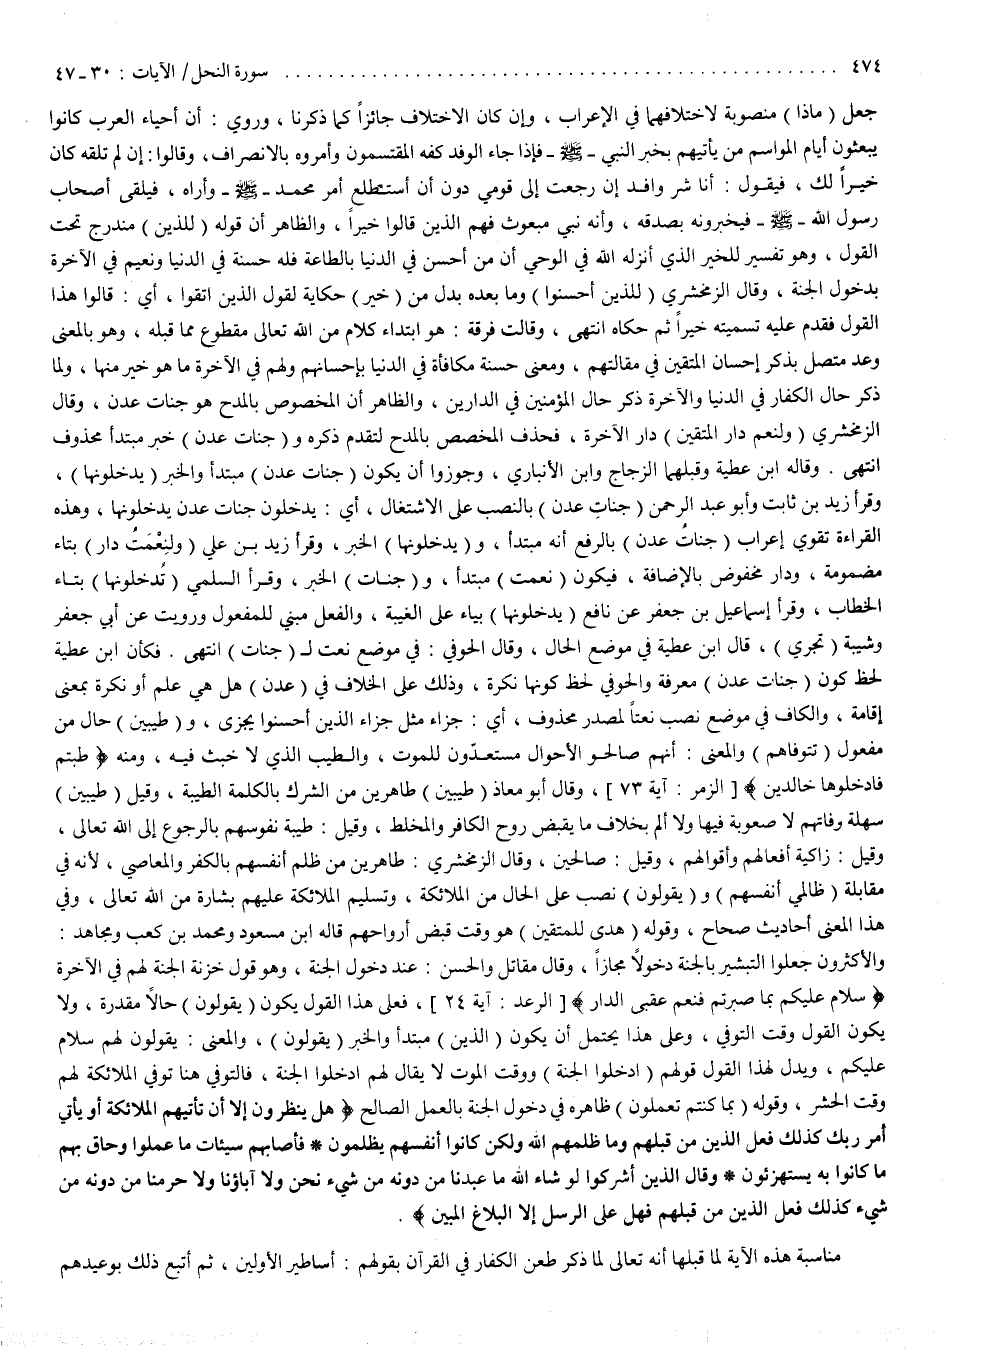 ٤٧٤ ................................................ سورة النحل / الآيات : ٣٠ ـ ٤٧
جعل ( ماذا ) منصوبة لاختلافهما في الإعراب ، وإن كان الاختلاف جائزاً كما ذكرنا ، وروي : أن أحياء العرب كانوا
يبعثون أيام المواسم من يأتيهم بخبر النبي ـ ﷺ ـ فإذا جاء الوفد كفه المقتسمون وأمروه بالانصراف ، وقالوا : إن لم تلقه كان
خيراً لك ، فيقول : أنا شر وافد إن رجعت إلى قومي دون أن أستطلع أمر محمد ـ ﷺ ـ وأراه ، فيلقى أصحاب
رسول الله ـ ﷺ ـ فيخبرونه بصدقه ، وأنه نبي مبعوث فهم الذين قالوا خيراً ، والظاهر أن قوله ( للذين ) مندرج تحت
القول ، وهو تفسير للخير الذي أنزله الله في الوحي أن من أحسن في الدنيا بالطاعة فله حسنة في الدنيا ونعيم في الآخرة
بدخول الجنة ، وقال الزمخشري ( للذين أحسنوا ) وما بعده بدل من ( خير ) حكاية لقول الذين اتقوا ، أي : قالوا هذا
القول فقدم عليه تسميته خيراً ثم حكاه انتهى ، وقالت فرقة : هو ابتداء كلام من الله تعالى مقطوع مما قبله ، وهو بالمعنى
وعد متصل بذكر إحسان المتقين في مقالتهم ، ومعنى حسنة مكافأة في الدنيا بإحسانهم ولهم في الآخرة ما هو خير منها ، ولما
ذكر حال الكفار في الدنيا والآخرة ذكر حال المؤمنين في الدارين ، والظاهر أن المخصوص بالمدح هو جنات عدن ، وقال
الزمخشري ( ولنعم دار المتقين ) دار الآخرة ، فحذف المخصص بالمدح لتقدم ذكره و ( جنات عدن ) خبر مبتدأ محذوف
انتهى . وقاله ابن عطية وقبلهما الزجاج وابن الأنباري ، وجوزوا أن يكون ( جنات عدن ) مبتدأ والخبر ( يدخلونها ) ،
وقرأ زيد بن ثابت وأبو عبد الرحمن ( جناتِ عدن ) بالنصب على الاشتغال ، أي : يدخلون جنات عدن يدخلونها ، وهذه
القراءة تقوي إعراب ( جناتُ عدن ) بالرفع أنه مبتدأ ، و ( يدخلونها ) الخبر ، وقرأ زيد بن علي ( ولنِعْمَتُ دار ) بتاء
مضمومة ، ودار مخفوض بالإضافة ، فيكون ( نعمت ) مبتدأ ، و ( جنات ) الخبر ، وقرأ السلمي ( تُدخلونها ) بتاء
الخطاب ، وقرأ إسماعيل بن جعفر عن نافع ( يدخلونها ) بياء على الغيبة ، والفعل مبني للمفعول ورويت عن أبي جعفر
وشيبة ( تجري ) ، قال ابن عطية في موضع الحال ، وقال الحوفي : في موضع نعت لـ ( جنات ) انتهى . فكأن ابن عطية
لحظ كون ( جنات عدن ) معرفة والحوفي لحظ كونها نكرة ، وذلك على الخلاف في ( عدن ) هل هي علم أو نكرة بمعنى
إقامة ، والكاف في موضع نصب نعتاً لمصدر محذوف ، أي : جزاء مثل جزاء الذين أحسنوا يجزى ، و ( طيبين ) حال من
مفعول ( تتوفاهم ) والمعنى : أنهم صالحو الأحوال مستعدّون للموت ، والطيب الذي لا خبث فيه ، ومنه ﴿ طبتم
فادخلوها خالدين ﴾ [ الزمر : آية ٧٣ ] ، وقال أبو معاذ ( طيبين ) طاهرين من الشرك بالكلمة الطيبة ، وقيل ( طيبين )
سهلة وفاتهم لا صعوبة فيها ولا ألم بخلاف ما يقبض روح الكافر والمخلط ، وقيل : طيبة نفوسهم بالرجوع إلى الله تعالى ،
وقيل : زاكية أفعالهم وأقوالهم ، وقيل : صالحين ، وقال الزمخشري : طاهرين من ظلم أنفسهم بالكفر والمعاصي ، لأنه في
مقابلة ( ظالمي أنفسهم ) و ( يقولون ) نصب على الحال من الملائكة ، وتسليم الملائكة عليهم بشارة من الله تعالى ، وفي
هذا المعنى أحاديث صحاح ، وقوله ( هدى للمتقين ) هو وقت قبض أرواحهم قاله ابن مسعود ومحمد بن كعب ومجاهد :
والأكثرون جعلوا التبشير بالجنة دخولاً مجازاً ، وقال مقاتل والحسن : عند دخول الجنة ، وهو قول خزنة الجنة لهم في الآخرة
﴿ سلام عليكم بما صبرتم فنعم عقبى الدار ﴾ [ الرعد : آية ٢٤ ] ، فعلى هذا القول يكون ( يقولون ) حالاً مقدرة ، ولا
يكون القول وقت التوفي ، وعلى هذا يحتمل أن يكون ( الذين ) مبتدأ والخبر ( يقولون ) ، والمعنى : يقولون لهم سلام
عليكم ، ويدل لهذا القول قولهم ( ادخلوا الجنة ) ووقت الموت لا يقال لهم ادخلوا الجنة ، فالتوفي هنا توفي الملائكة لهم
وقت الحشر ، وقوله ( بما كنتم تعملون ) ظاهره في دخول الجنة بالعمل الصالح ﴿ هل ينظرون إلا أن تأتيهم الملائكة أو يأتي
أمر ربك كذلك فعل الذين من قبلهم وما ظلمهم الله ولكن كانوا أنفسهم يظلمون * فأصابهم سيئات ما عملوا وحاق بهم
ما كانوا به يستهزئون * وقال الذين أشركوا لو شاء الله ما عبدنا من دونه من شيء نحن ولا آباؤنا ولا حرمنا من دونه من
شيء كذلك فعل الذين من قبلهم فهل على الرسل إلا البلاغ المبين ﴾ .
مناسبة هذه الآية لما قبلها أنه تعالى لما ذكر طعن الكفار في القرآن بقولهم : أساطير الأولين ، ثم أتبع ذلك بوعيدهم